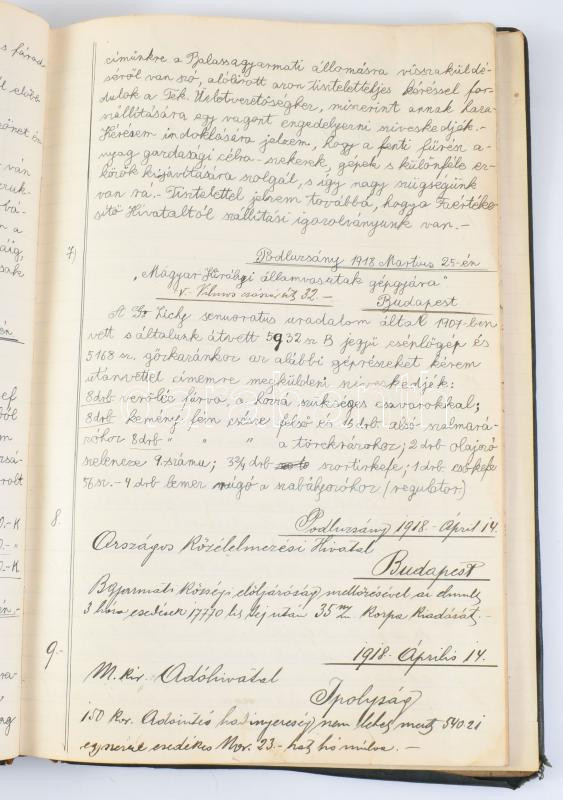 címünkre a Balassagyarmati állomásra visszaküldé-
séről van szó, alólirott azon tiszteletteljes kéréssel for-
dulok a Tek. Üzletvezetőséghez, miszerint annak haza-
szállítására egy vagont engedélyezni sziveskedjék.-
Kérésem indoklására jelzem, hogy a fenti fűrész a-
nyag gazdasági célra szekerek, gépek s különféle esz-
közök kijavítására szolgál, s így nagy szükségünk
van rá.- Tisztelettel jelzem továbbá, hogy a Faértéke-
sítő Hivataltól szállítási igazolványunk van.-
7) Podluzsány 1918 Martius 25-én
"Magyar Királyi államvasutak gépgyára"
V.- Vilmos császár út 32.- Budapest
A Gr Zichy senioratus uradalom által 1907-ben
vett s általunk átvett 5932 sz B jegyű cséplőgép és
5168 sz. gőzkazánhoz az alábbi géprészeket kérem
utánvéttel címemre megküldeni sziveskedjék:
8 drb verőléc fúrva a hozzá szükséges csavarokkal;
8 drb kemény felső és 16 drb alsó szalmará-
zóhoz 8 drb " " " a törekrázóhoz; 2 drb olajozó
szelence 9. számu; 3 drb szortirkefe; 1 drb csőkefe
56 sz.- 4 drb lemez rúgó a szabályzóhoz (regulator)
8. Podluzsány 1918 - Április 14.
Országos Közélelmezési Hivatal
Budapest
Bgyarmati Községi elöljáróság mellőzésével
3 hóra esedékes 17770 lit. tej után 35 korpa kiadását.-
9.- 1918 - Április 14.
M. kir. Adóhivatal
Ipolyság
150 Kor. Adóintés hadinyereség nem lehet mert 540.21
egyszerre esedékes Nov. 23.- hat hó múlva.-